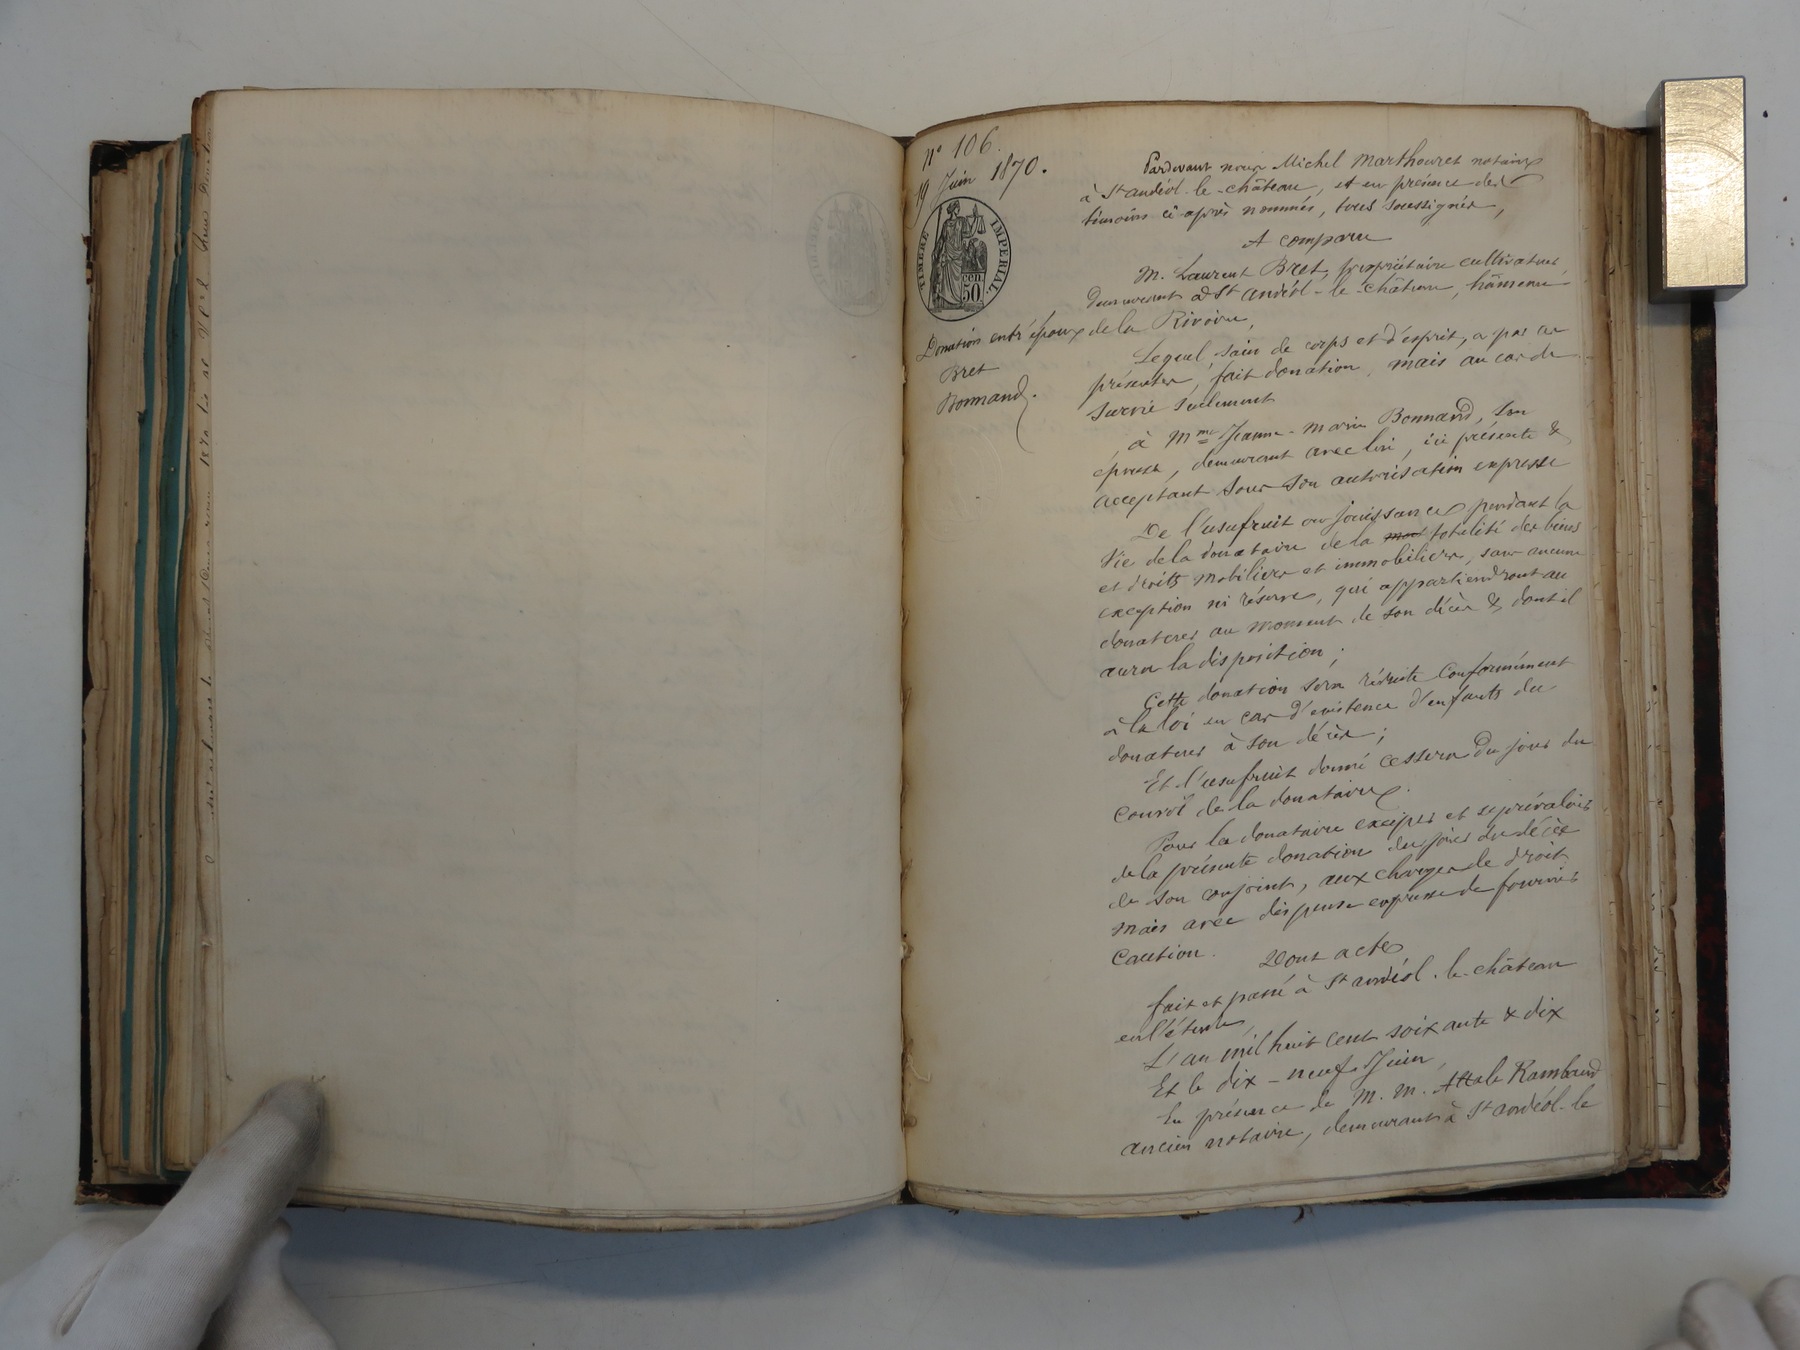 n° 106.
19 Juin 1870.
TIMBRE IMPERIAL.
50 cen
Donation entre époux
Bret
Bonnand.
Pardevant nous Michel Marthouret notaire
à St andéol-le-château, et en présence des
témoins ci-après nommés, tous soussignés,
A comparu
M. Laurent Bret, propriétaire cultivateur
demeurant à St andéol-le-château, hâmeau
de la Rivoire,
Lequel, sain de corps et d'esprit, a par ces
présentes, fait donation, mais au cas de
survie seulement
à Mme Jeanne-Marie Bonnand, son
épouse, demeurant avec lui, ici présente &
acceptant sous son autorisation expresse
De l'usufruit ou jouissance pendant la
vie de la donataire de la totalité des biens
et droits mobiliers et immobiliers, sans aucune
exception ni réserve, qui appartiendront au
donateur au moment de son décès & dont il
aura la disposition;
Cette donation sera réduite conformément
à la loi en cas d'existence d'enfants du
donateur à son décès;
Et l'usufruit donné cessera du jour du
convol de la donataire.
Pour la donataire exciper et se prévaloir
de la présente donation du jour du décès
de son conjoint, aux charges de droit
mais avec dispense expresse de fournir
caution. Dont acte
fait et passé à St andéol-le-château
en l'étude
L'an mil huit cent soixante & dix
Et le dix-neuf Juin,
En présence de M. M. Attale Rambaud
ancien notaire, demeurant à St andéol-le